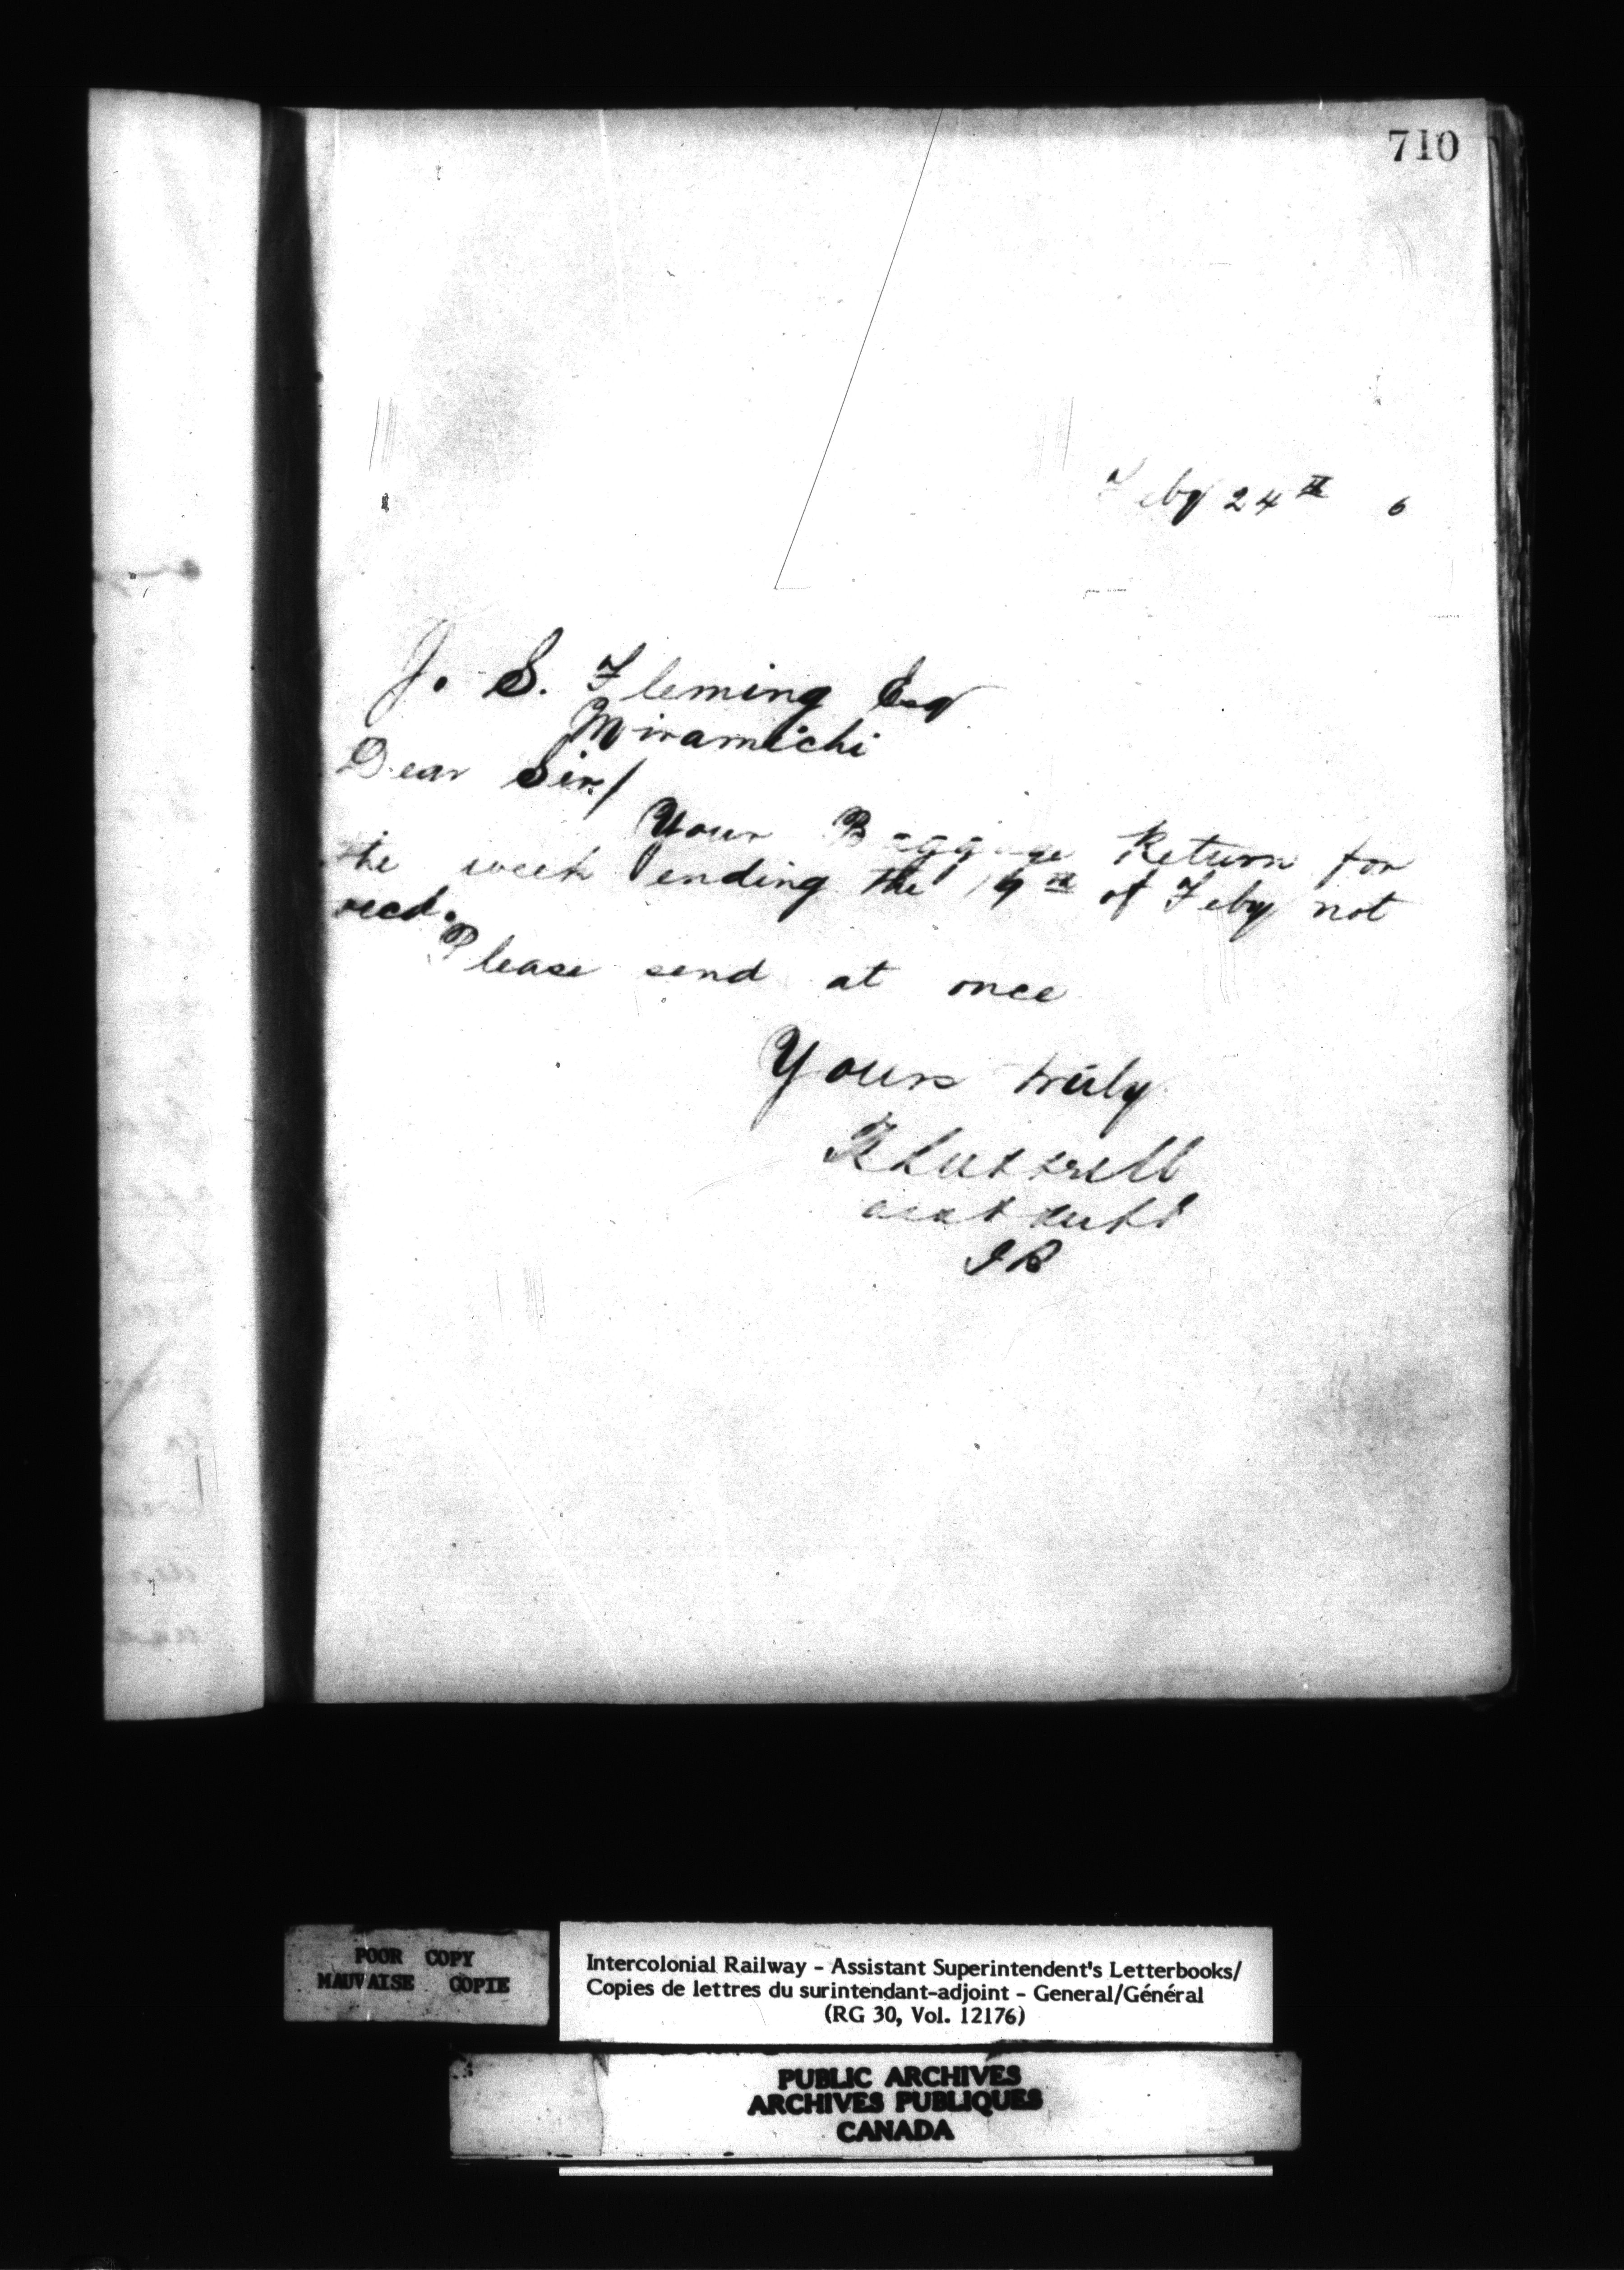 710
Feby 24th 6
J. S. Fleming Esq
Miramichi
Dear Sir/
Your Baggage Return for
the week ending the 19th of Feby not
recd.
Please send at once
Yours truly
Luttrell
asst supt
IR
POOR COPY
MAUVAISE COPIE
Intercolonial Railway - Assistant Superintendent's Letterbooks/
Copies de lettres du surintendant-adjoint - General/Général
(RG 30, Vol. 12176)
PUBLIC ARCHIVES
ARCHIVES PUBLIQUES
CANADA